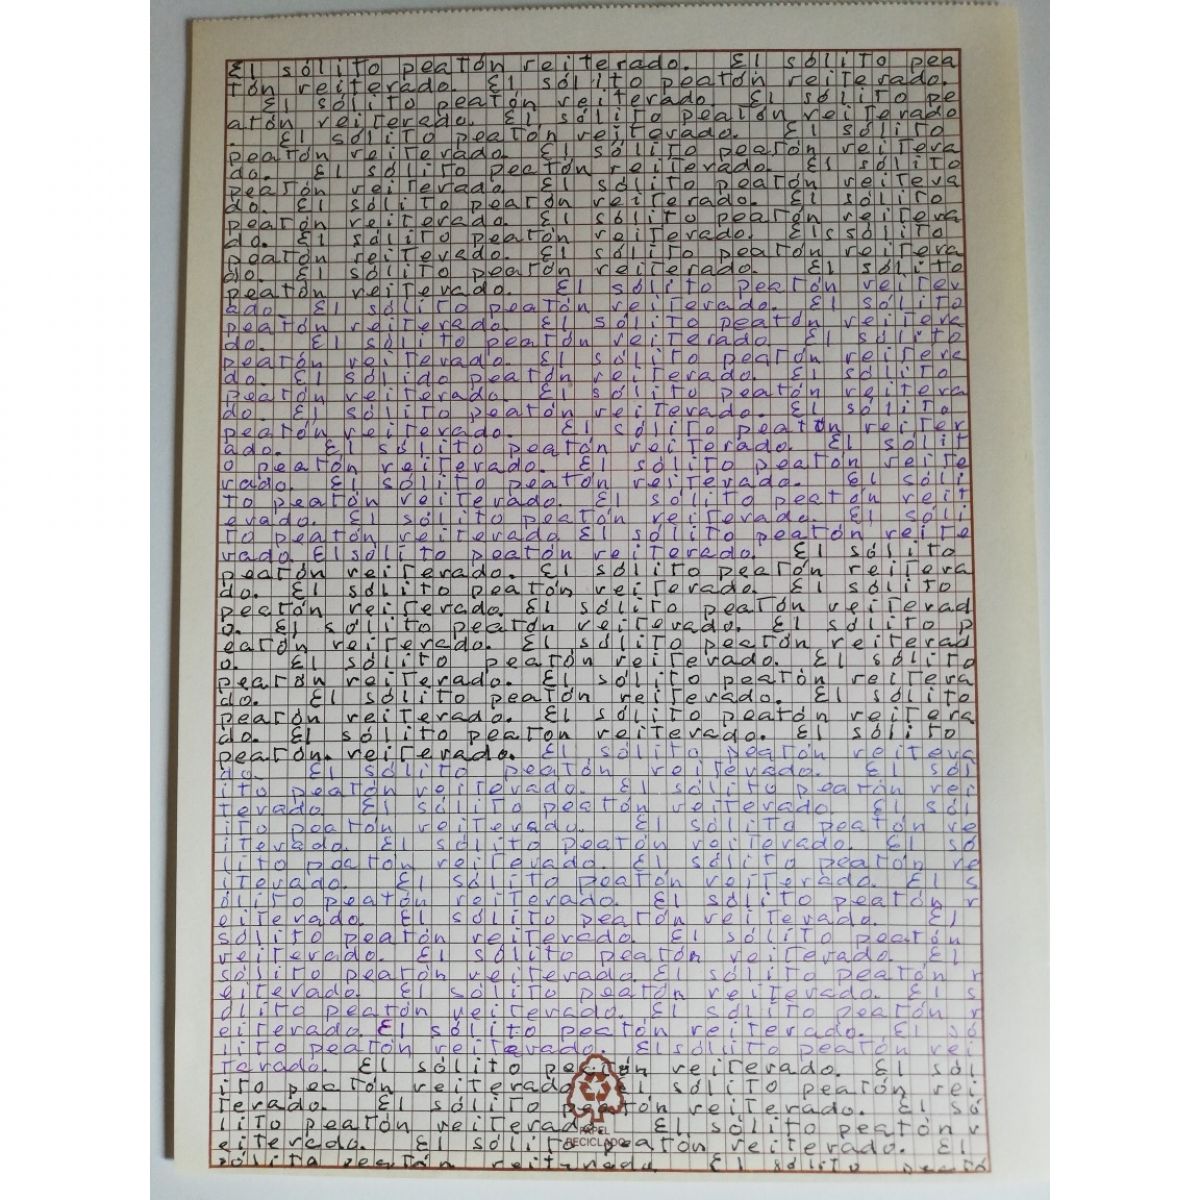 El sólito peatón reiterado. El sólito pea
tón reiterado. El sólito peatón reiterado.
El sólito peatón reiterado. El sólito pe
atón reiterado. El sólito peatón reiterado
. El sólito peatón reiterado. El sólito
peatón reiterado. El sólito peatón reitera
do. El sólito peatón reiterado. El sólito
peatón reiterado. El sólito peatón reitera
do. El sólito peatón reiterado. El sólito
peatón reiterado. El sólito peatón reitera
do. El sólito peatón reiterado. Elssólito
peatón reiterado. El sólito peatón reitera
do. El sólito peatón reiterado. El sólito
peatón reiterado. El sólito peatón reiter
ado. El sólito peatón reiterado. El sólito
peatón reiterado. El sólito peatón reitera
do. El sólito peatón reiterado. El sólito
peatón reiterado. El sólito peatón reitera
do. El sólido peatón reiterado. El sólito
peatón reiterado. El sólito peatón reitera
do. El sólito peatón reiterado. El sólito
peatón reiterado. El sólito peatón reiter
ado. El sólito peatón reiterado. El sólit
o peatón reiterado. El sólito peatón reite
rado. El sólito peatón reiterado. El sóli
to peatón reiterado. El sólito peatón reit
erado. El sólito peatón reiterado. El sóli
to peatón reiterado. El sólito peatón reite
rado. Elsólito peatón reiterado. El sólito
peatón reiterado. El sólito peatón reitera
do. El sólito peatón reiterado. El sólito
peatón reiterado. El sólito peatón reiterad
o. El sólito peatón reiterado. El sólito p
eatón reiterado. El sólito peatón reiterad
o. El sólito peatón reiterado. El sólito
peatón reiterado. El sólito peatón reitera
do. El sólito peatón reiterado. El sólito
peatón reiterado. El sólito peatón reitera
do. El sólito peatón reiterado. El sólito
peatón. reiterado. El sólito peatón reitera
do. El sólito peatón reiterado. El sól
ito peatón reiterado. El sólito peatón rei
terado. El sólito peatón reiterado. El sól
ito peatón reiterado. El sólito peatón re
iterado. El sólito peatón reiterado. El só
lito peatón reiterado. El sólito peatón re
iterado. El sólito peatón reiterado. El s
ólito peatón reiterado. El sólito peatón r
eiterado. El sólito peatón reiterado. El
sólito peatón reiterado. El sólito peatón
reiterado. El sólito peatón reiterado. El
sólito peatón reiterado. El sólito peatón r
eiterado. El sólito peatón reiterado. El s
ólito peatón reiterado. El sólito peatón r
eiterado. El sólito peatón reiterado. El só
lito peatón reiterado. Elsólito peatón rei
terado. El sólito peatón reiterado. El sól
ito peatón reiterado. El sólito peatón rei
terado. El sólito peatón reiterado. El só
lito peatón reiterado. El sólito peatón r
eiterado. El sólito peatón reiterado. El
sólito peatón reiterado. El sólito peató
PAPEL
RECICLADO